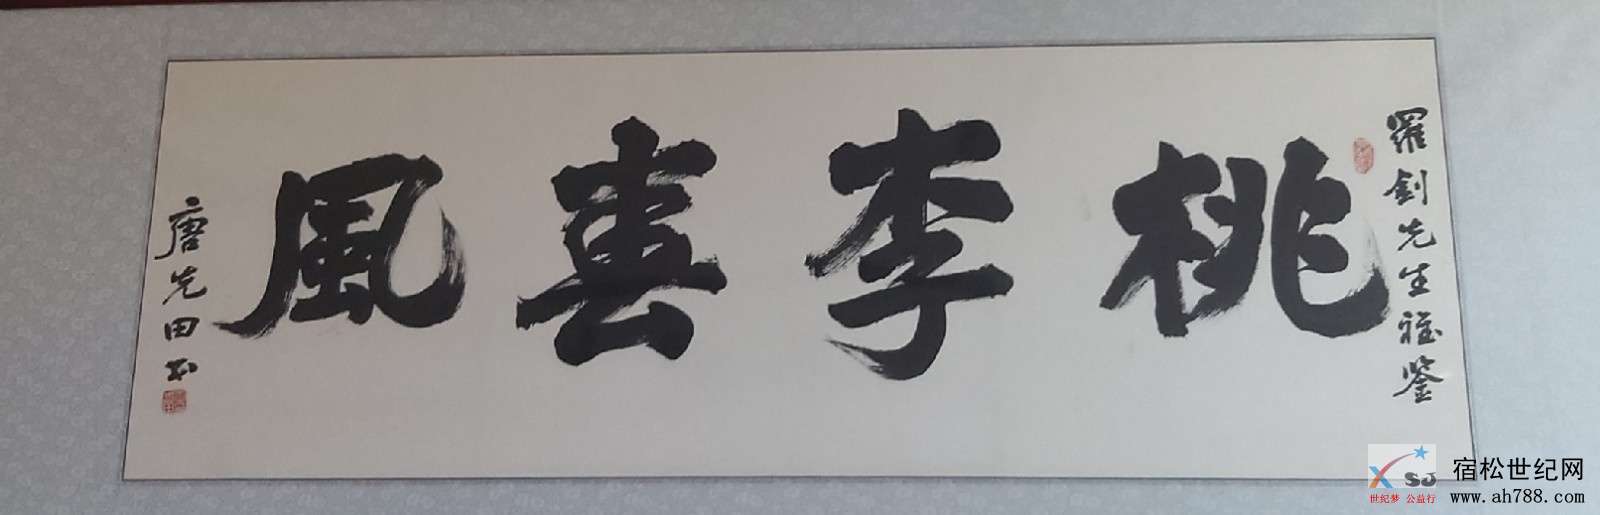 羅劍先生雅鑒
桃李春風
唐先田書
SJ
世纪梦 公益行
宿松世纪网
www.ah788.com